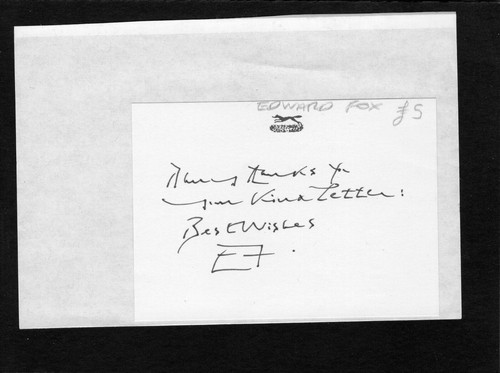 EDWARD FOX £5
Many thanks for
your kind letter:
Best Wishes
EF.